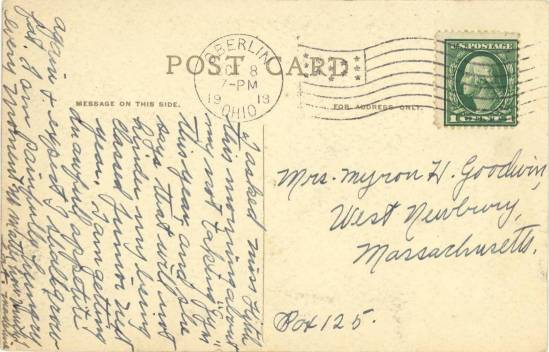 POST CARD
MESSAGE ON THIS SIDE.
FOR ADDRESS ONLY.
OBERLIN
8
7-PM
1913
OHIO
U.S. POSTAGE
1 CENT 1
Mrs. Myron W. Goodwin,
West Newbury,
Massachusetts.
Box 125.
I asked Miss
this morning about
my not taking "Gym"
this year, and she
says that will not
hinder my being
classed Junior next
year. I am getting
an awful appetite
again & expect I shall grow
fat. I am painfully hungry
every